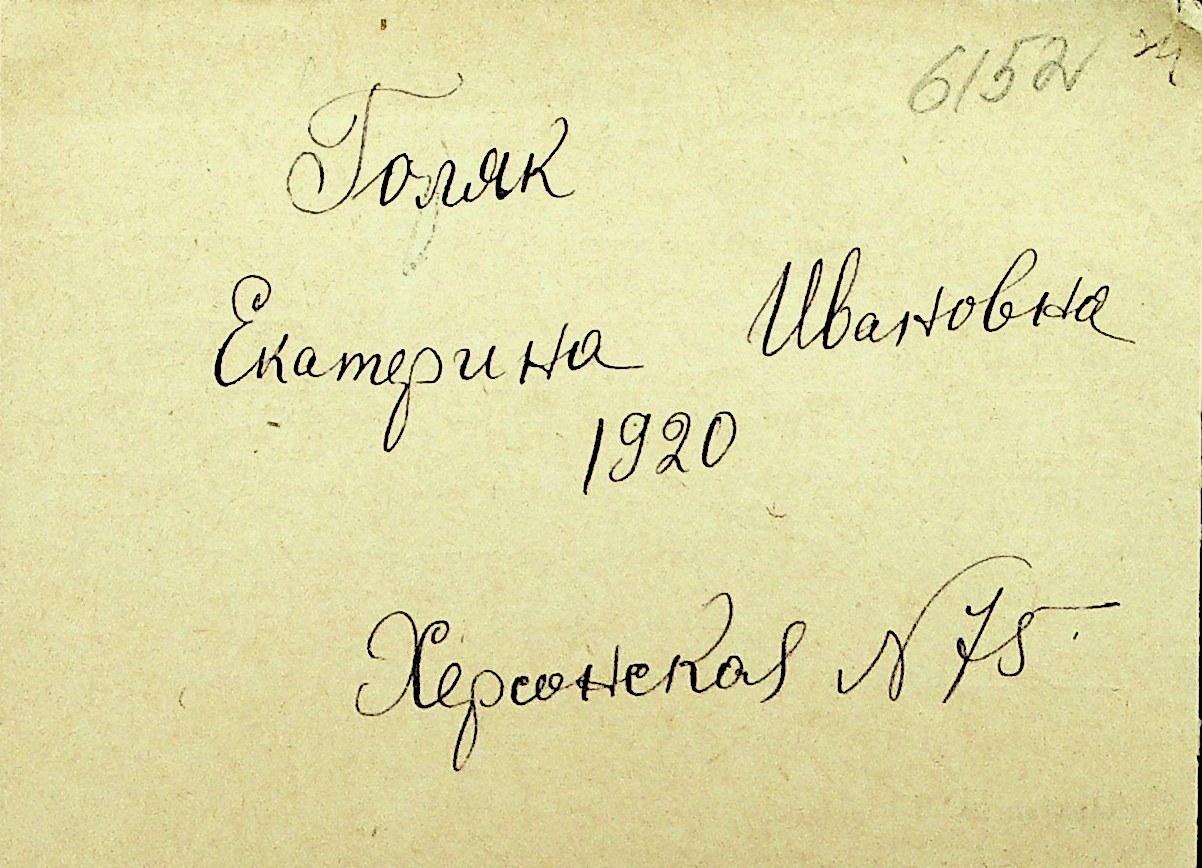 6152
Голяк
Екатерина Ивановна
1920
Херсонская N 75